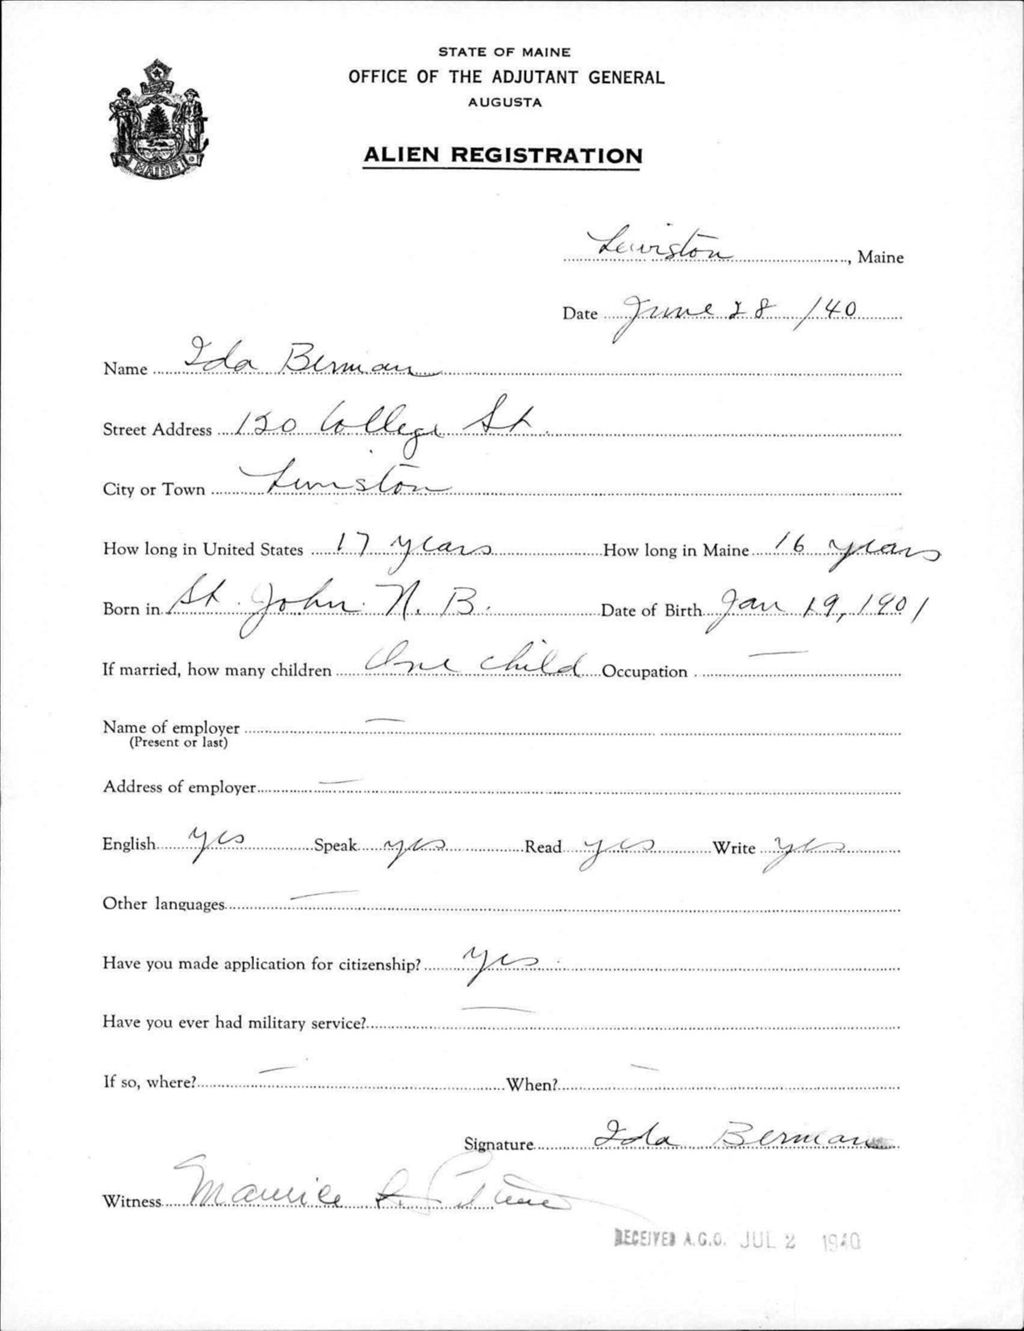 STATE OF MAINE
OFFICE OF THE ADJUTANT GENERAL
AUGUSTA
ALIEN REGISTRATION
MAINE
Lewiston, Maine
Date June 28 /40
Name Ida Berman
Street Address 130 College St.
City or Town Lewiston
How long in United States 17 years How long in Maine 16 years
Born in St. John N. B. Date of Birth Jan 19, 1901
If married, how many children One child Occupation —
Name of employer —
(Present or last)
Address of employer —
English yes Speak yes Read yes Write yes
Other languages —
Have you made application for citizenship? yes
Have you ever had military service? —
If so, where? — When? —
Signature Ida Berman
Witness Maurice
RECEIVED A.G.O. JUL 2 1940